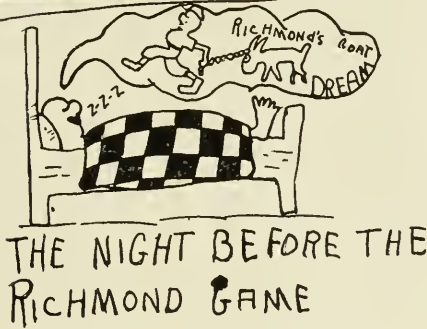 RICHMOND'S GOAT
DREAM
Z-Z-Z
THE NIGHT BEFORE THE
RICHMOND GAME